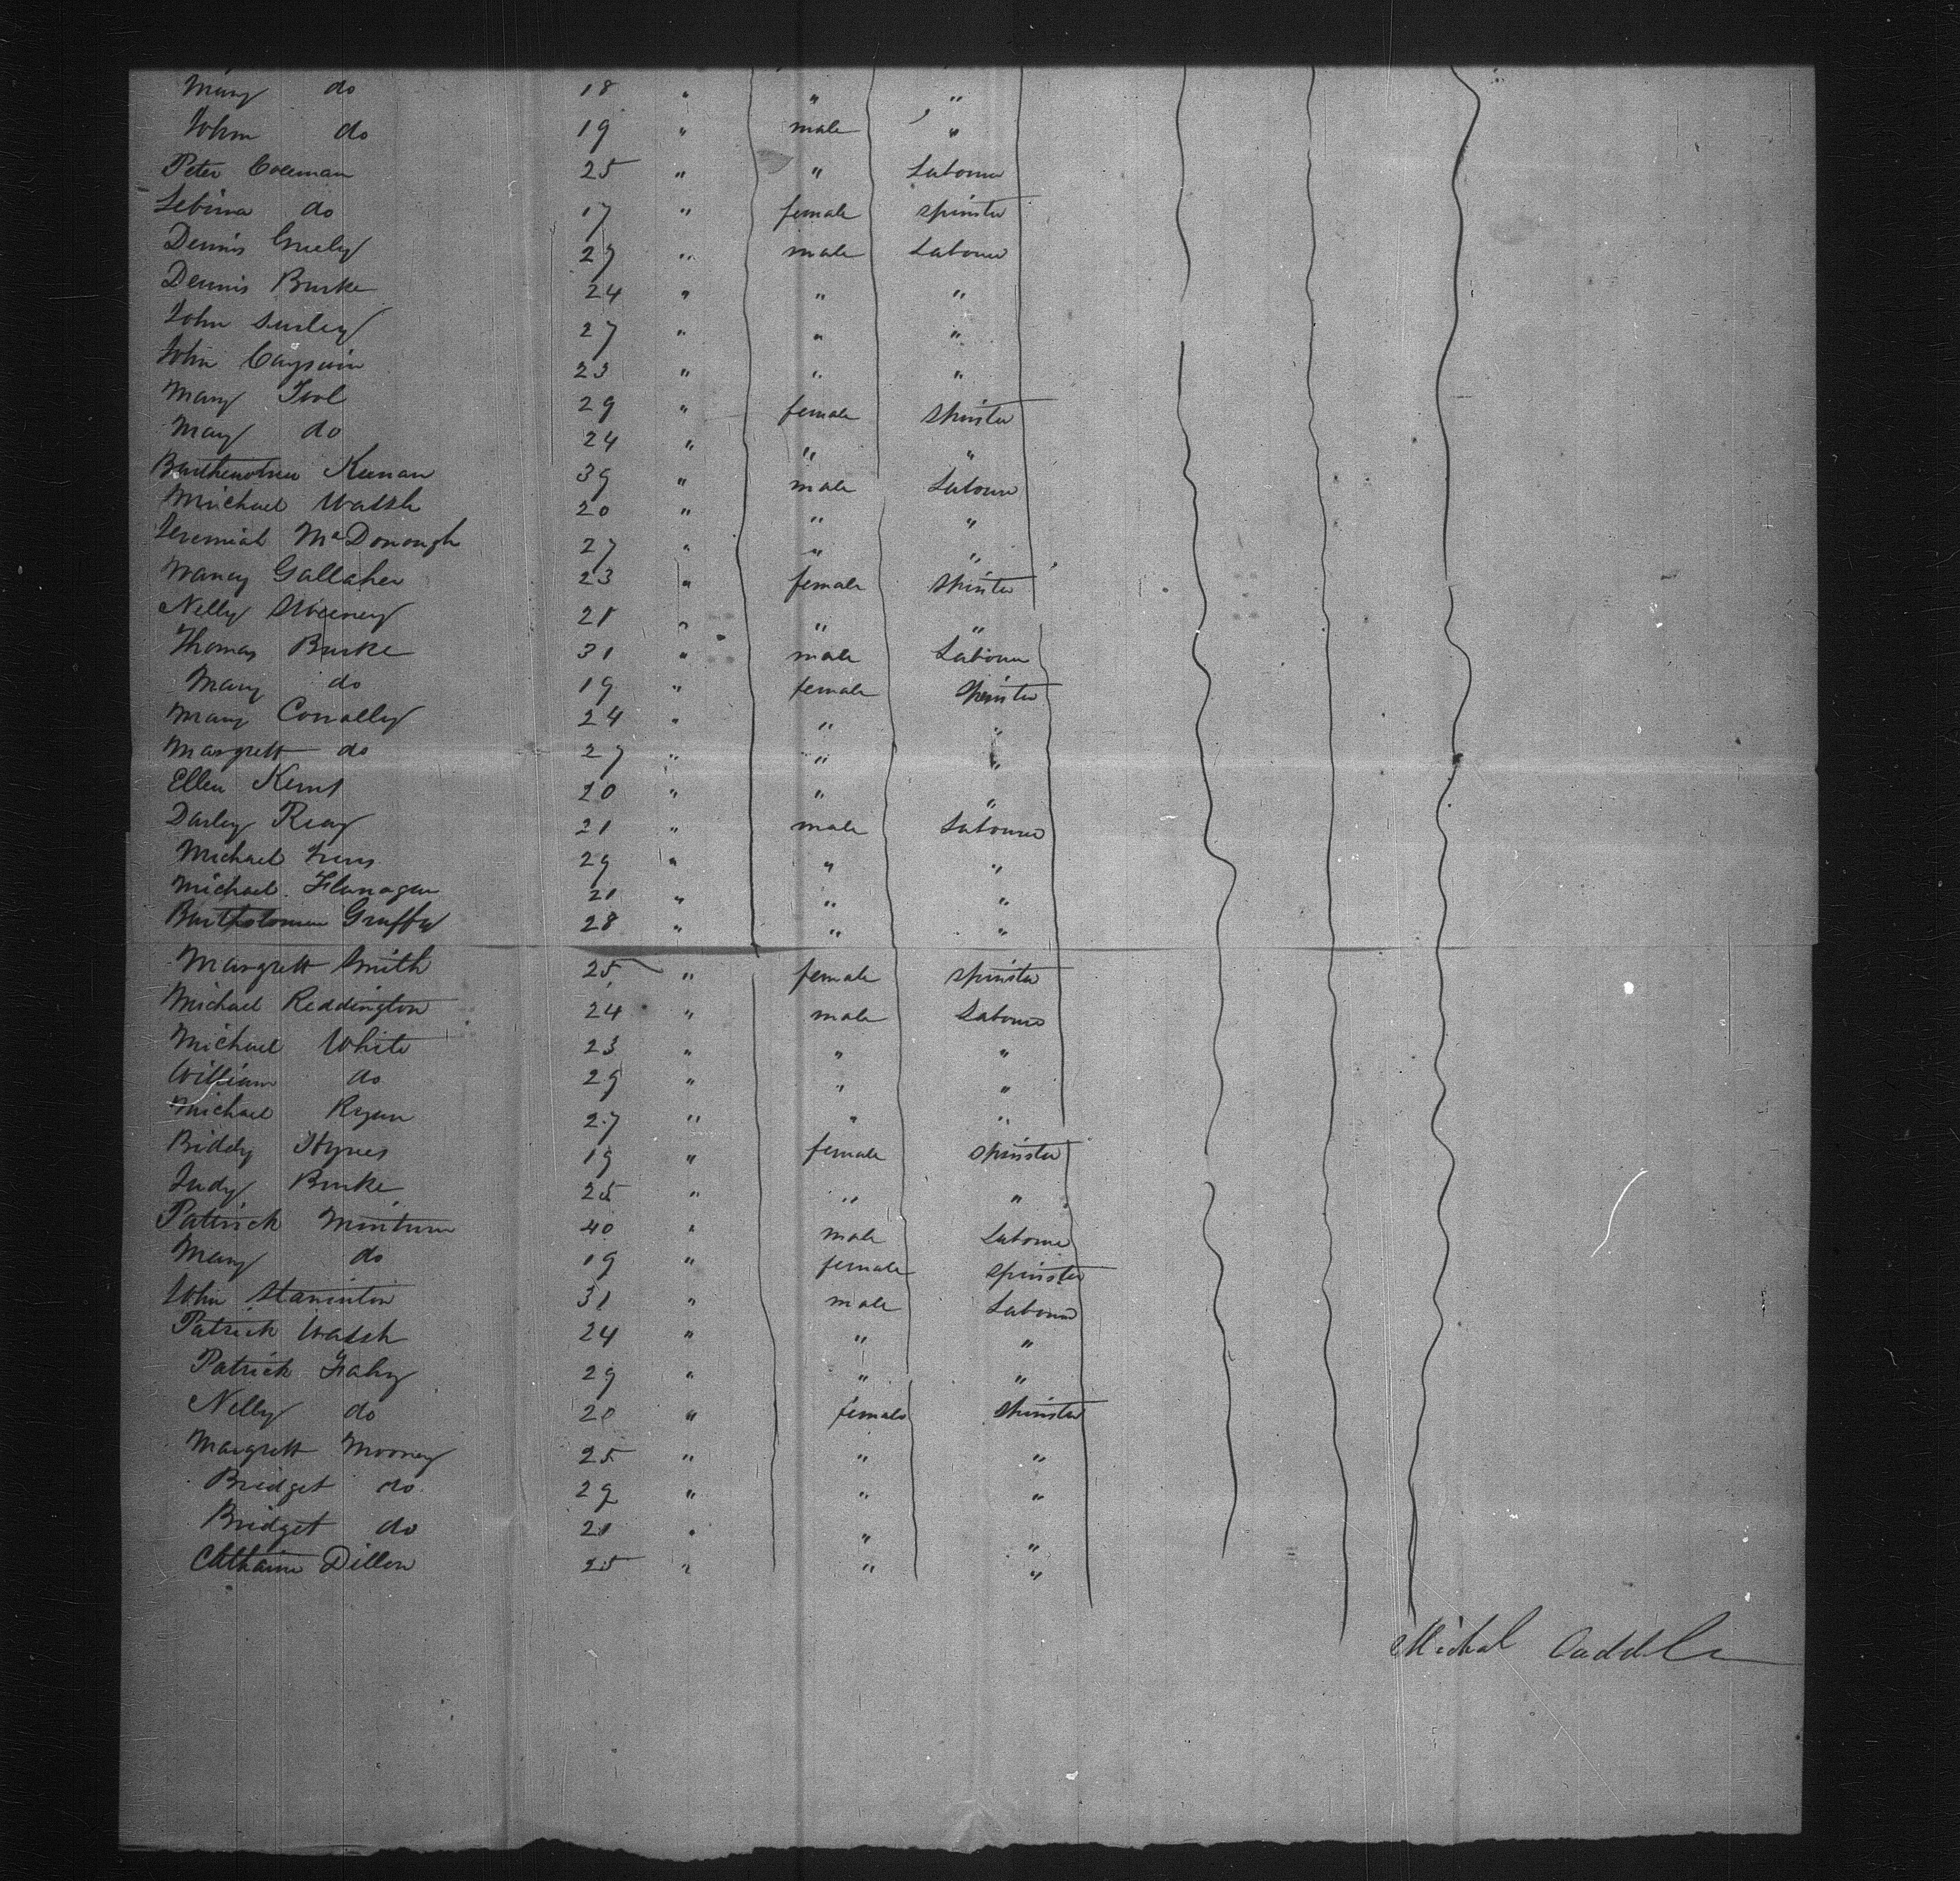 Mary do 18 " " "
John do 19 " male "
Peter Coleman 25 " " Labourer
Sebina do 17 " female spinster
Dennis 27 " male Labourer
Dennis Burke 24 " " "
John 27 " " "
John 23 " " "
Mary Tool 29 " female spinster
Mary do 24 " " "
Keenan 39 " male Labourer
Michael Walsh 20 " " "
Jeremiah McDonough 27 " " "
Nancy Gallaher 23 " female spinster
Nelly Sweeney 21 " " "
Thomas Burke 31 " male Labourer
Mary do 19 " female spinster
Mary Conally 24 " " "
Margrett do 27 " " "
Ellen 20 " " "
Darley Reay 21 " male Labourer
Michael 29 " " "
Michael Flanagan 21 " " "
Bartholomew 28 " " "
Margrett Smith 25 " female spinster
Michael Reddington 24 " male Labourer
Michael White 23 " " "
William do 29 " " "
Michael Ryan 27 " " "
Biddy Hynes 19 " female spinster
Judy Burke 25 " " "
Patrick 40 " male Labourer
Mary do 19 " female spinster
John Staninton 31 " male Labourer
Patrick Walsh 24 " " "
Patrick Fahy 29 " " "
Nelly do 20 " female spinster
Margrett Mooney 25 " " "
Bridget do 29 " " "
Bridget do 21 " " "
Dillon 25 " " "